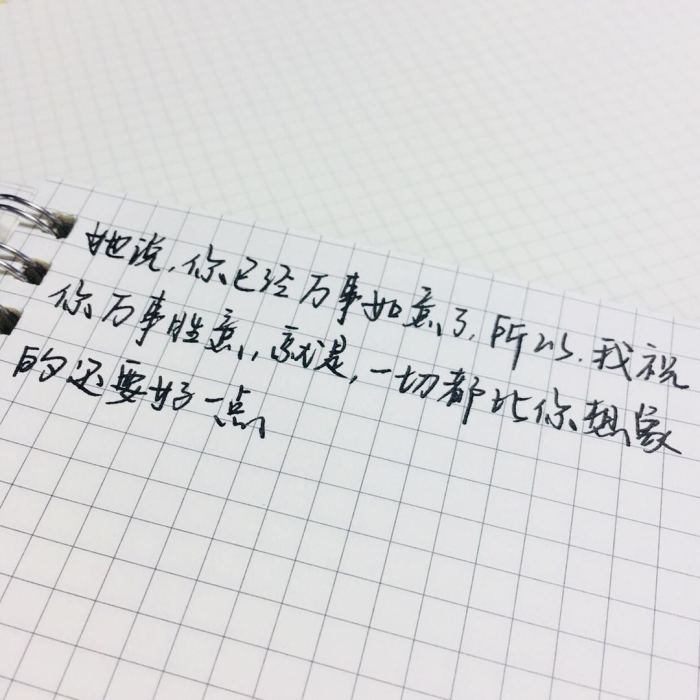 她说,你已经万事如意了,所以,我祝
你万事胜意,就是,一切都比你想象
的还要好一点